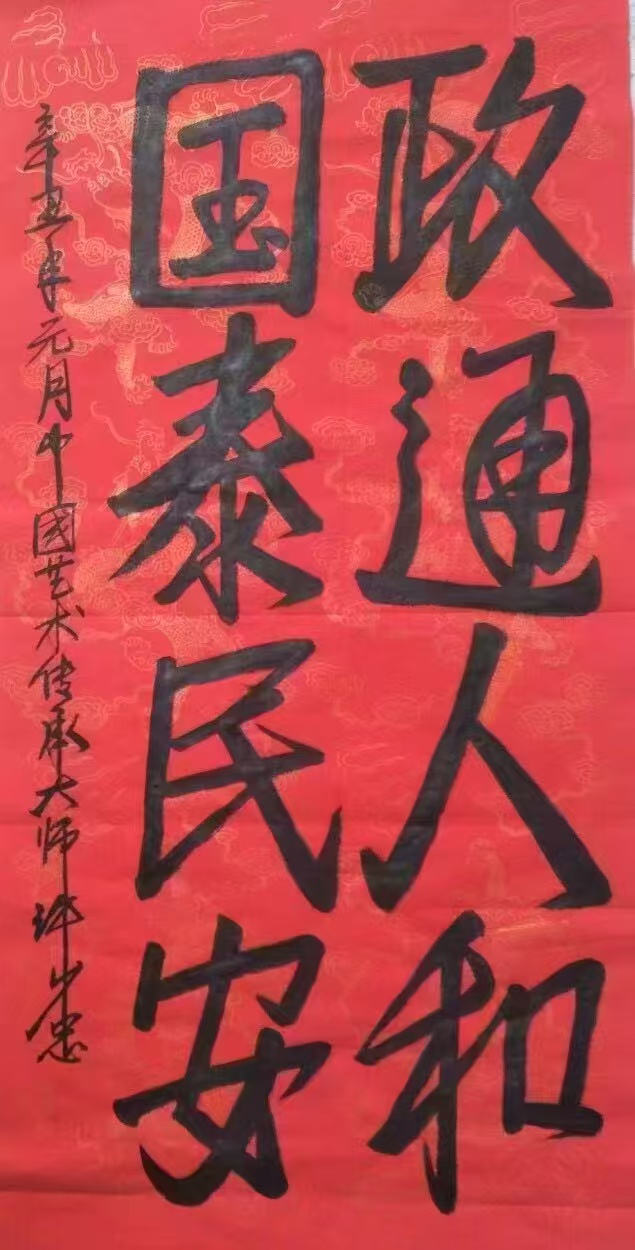 政通人和
国泰民安
辛丑年元月中国艺术传承大师许山忠